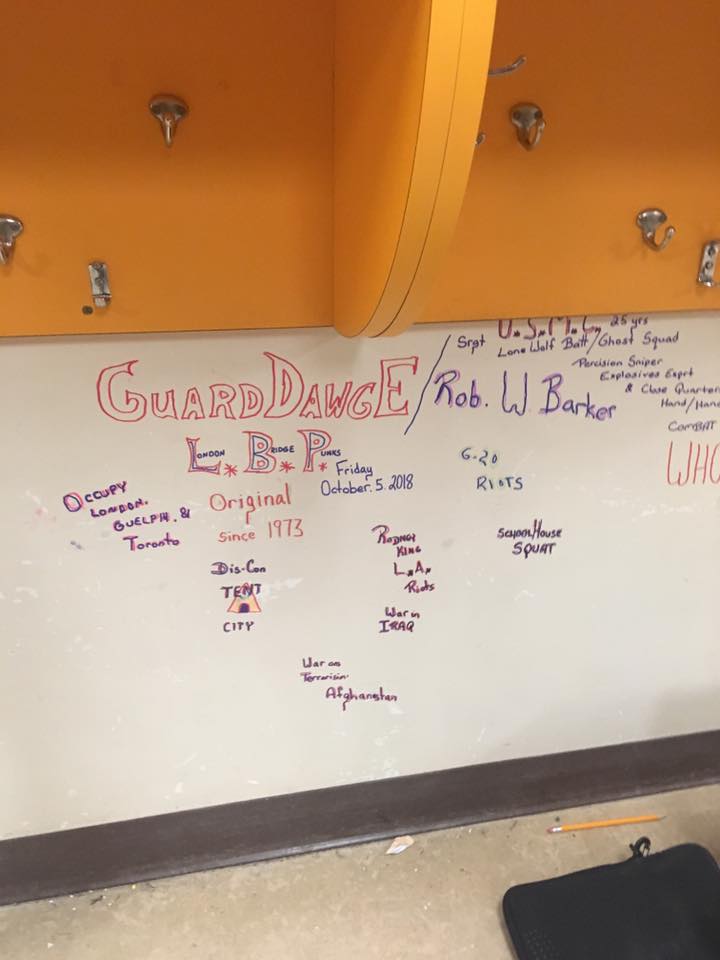 U.S.M.C. 25 yrs
Srgt Lone Wolf Batt/Ghost Squad
Percision Sniper
Explosives Exprt
& Close Quarter
Hand/Hand
ComBAT
GUARD DAWGE/Rob. W Barker
WHO
LONDON BRIDGE PUNKS
L. B. P.
Friday
October. 5. 2018
G-20
RIOTS
OCCUPY
LONDON.
GUELPH. &
Toronto
Original
Since 1973
RODNEY
KING
L.A.
Riots
SCHOOL HOUSE
SQUAT
Dis-Con
TENT
CITY
War in
IRAQ
War on
Terrorism
Afghanstan